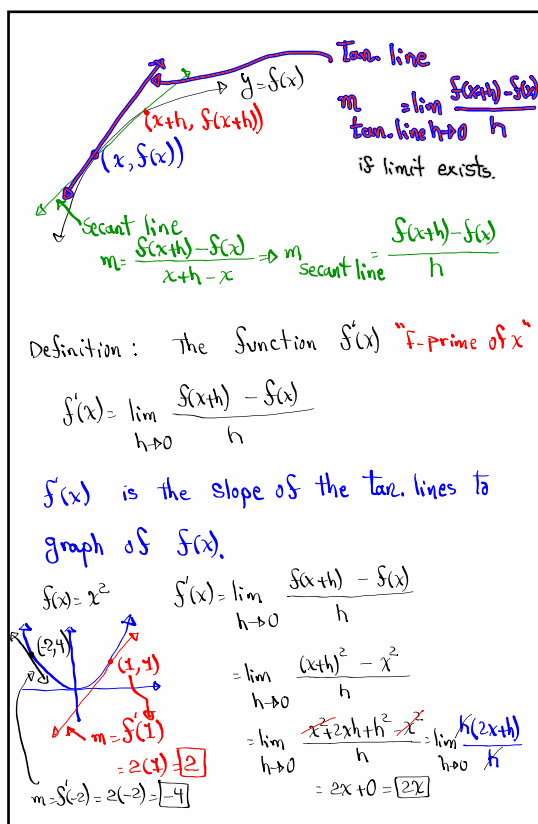 Tan. line
y=f(x)
(x+h, f(x+h))
m tan. line = lim h→0 f(x+h)-f(x) / h
(x, f(x))
if limit exists.
Secant line
m= f(x+h)-f(x) / x+h-x ⇒ m secant line = f(x+h)-f(x) / h
Definition: The function f'(x) "F-prime of x"
f'(x)= lim h→0 f(x+h) - f(x) / h
f'(x) is the slope of the tan. lines to
graph of f(x).
f(x)=x² f'(x)= lim h→0 f(x+h) - f(x) / h
(-2,4)
(1,1)
= lim h→0 (x+h)² - x² / h
m=f'(1)
=2(1)=2
= lim h→0 x²+2xh+h²-x² / h = lim h→0 h(2x+h) / h
= 2x+0 = 2x
m=f'(-2)=2(-2)=-4